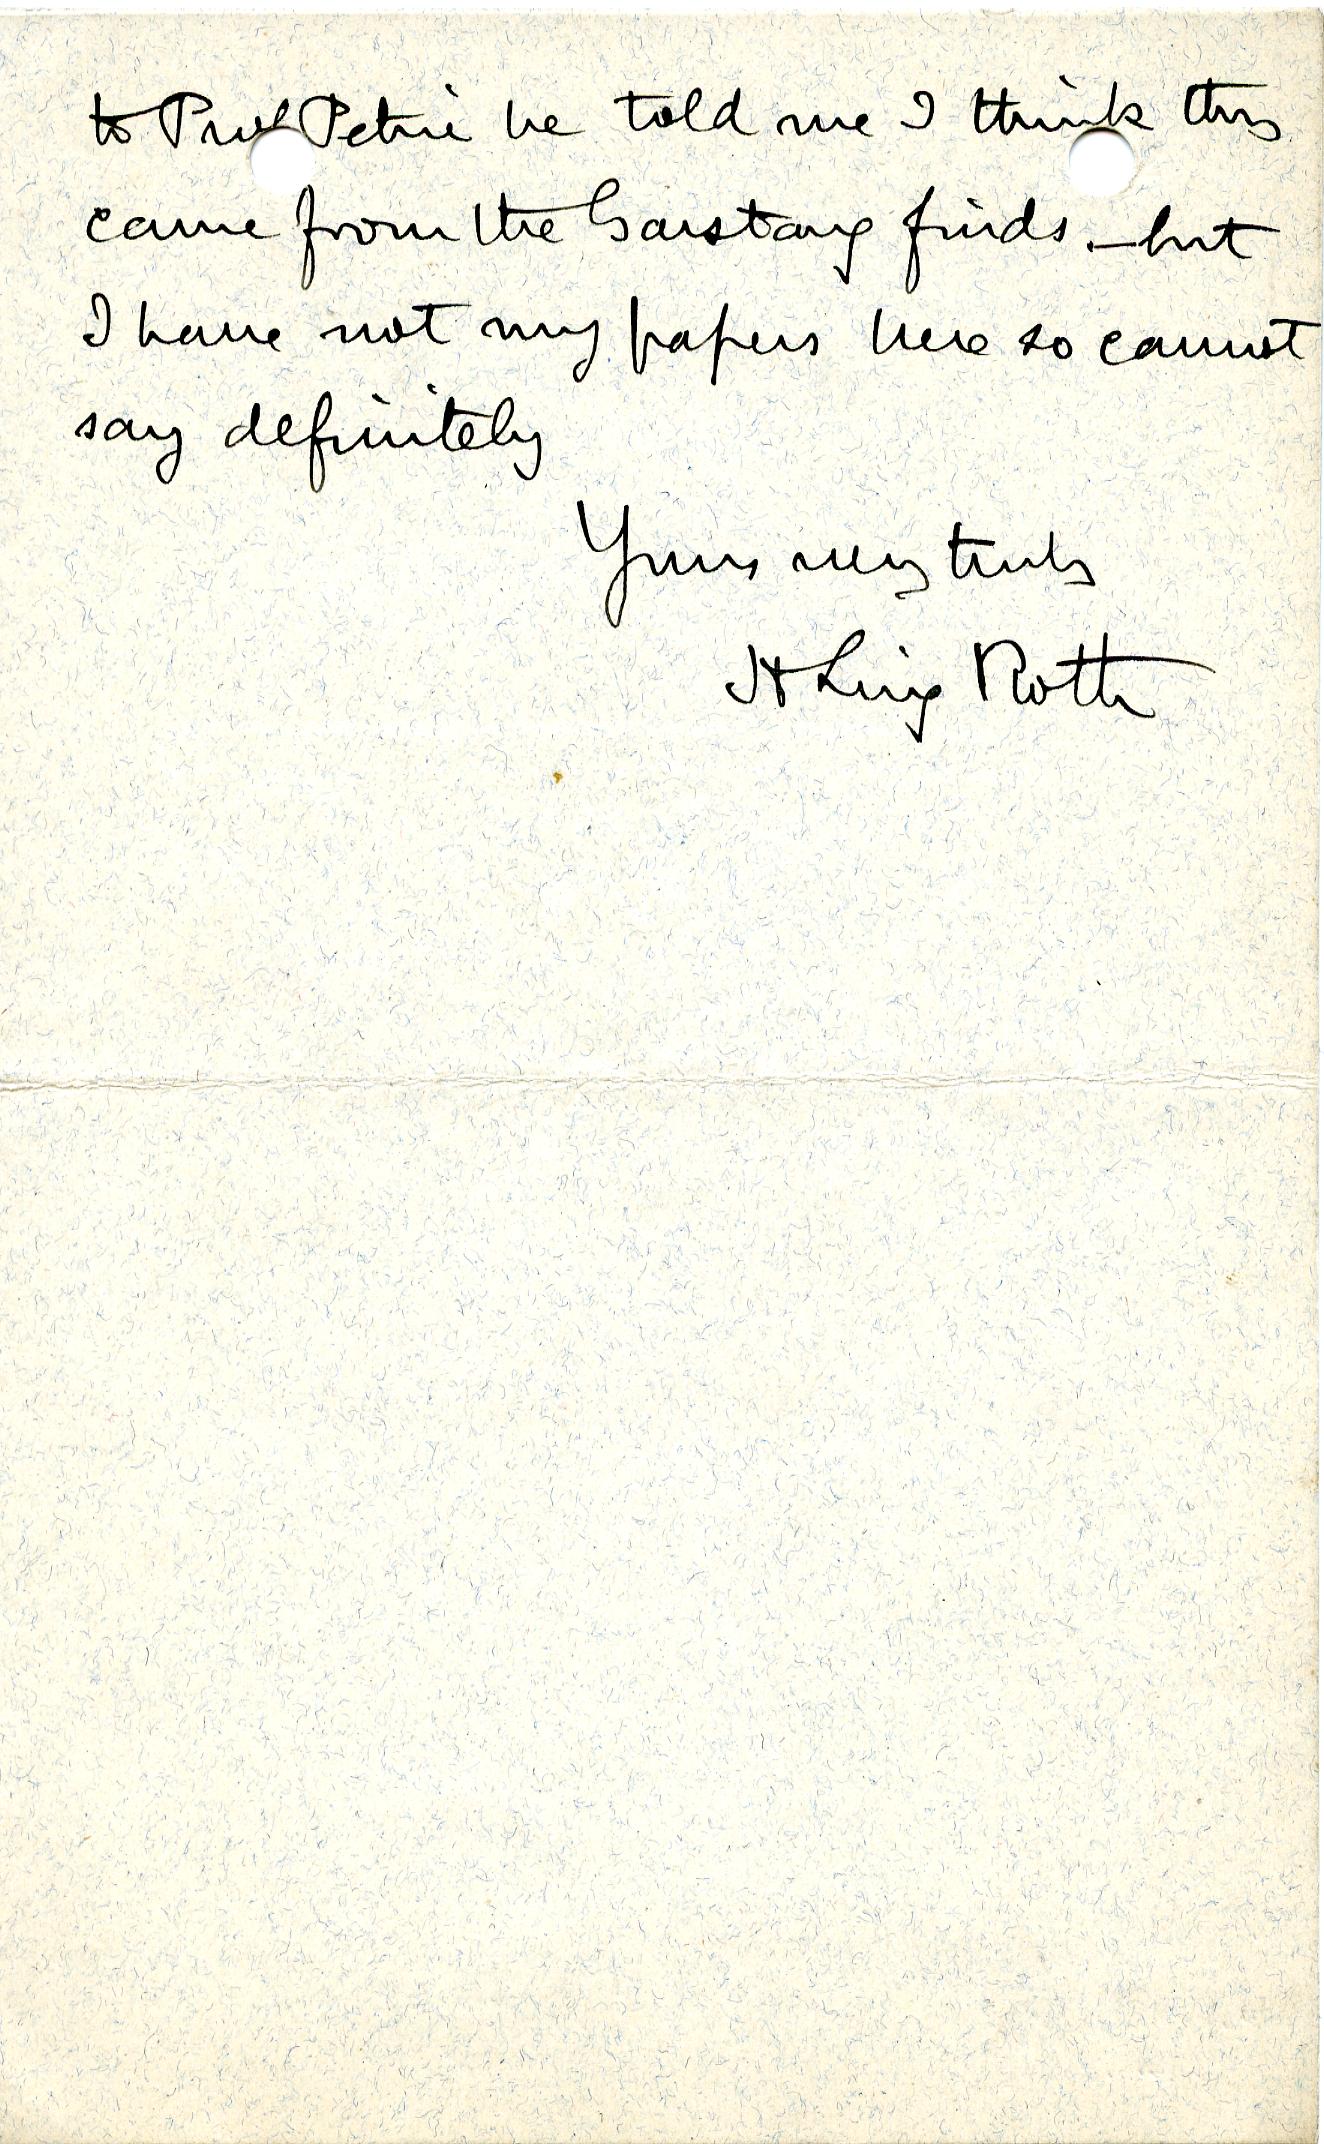 to Prof Petrie he told me I think this
came from the Garstang finds. – but
I have not my papers here so cannot
say definitely
Yours very truly
H Ling Roth